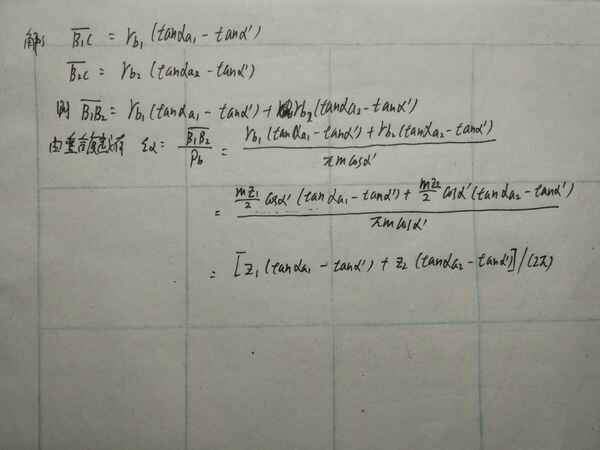 解: B̅₁C̅ = r_b₁ (tanαa₁ - tanα')
B̅₂C̅ = r_b₂ (tanαa₂ - tanα')
则 B̅₁B̅₂ = r_b₁ (tanαa₁ - tanα') + r_b₂ (tanαa₂ - tanα')
由重合度 εα = B̅₁B̅₂ / P_b = [r_b₁ (tanαa₁ - tanα') + r_b₂ (tanαa₂ - tanα')] / πm cosα'
= [mz₁/2 cosα' (tanαa₁ - tanα') + mz₂/2 cosα' (tanαa₂ - tanα')] / πm cosα'
= [z₁ (tanαa₁ - tanα') + z₂ (tanαa₂ - tanα')] / (2π)